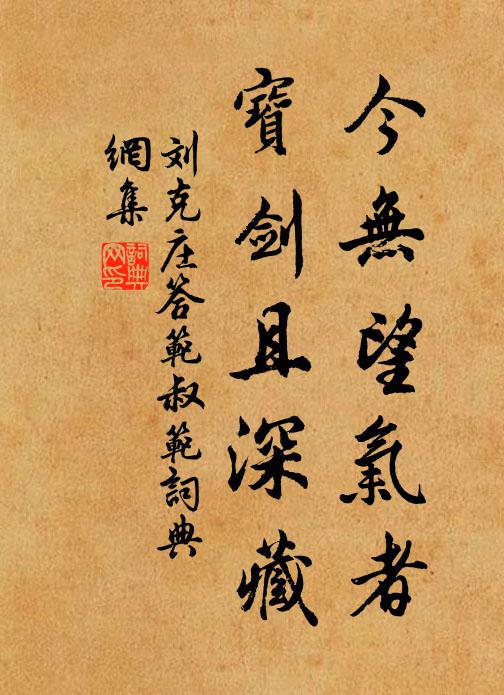 今無望氣者
寶劍且深藏
刘克庄答範叔範詞典
網集
詞典
网印